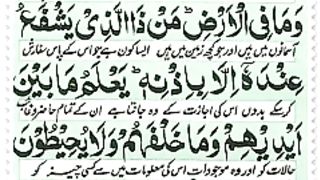 وَمَا فِی الْاَرْضِ ؕ مَنْ ذَا الَّذِیْ یَشْفَعُ
آسمانوں میں ہیں اور جو کچھ زمین میں ہیں ایسا کون ہے جو اس کے پاس سفارش
عِنْدَهٗۤ اِلَّا بِاِذْنِهٖ ؕ یَعْلَمُ مَا بَیْنَ
کرسکے بدوں اس کی اجازت کے وہ جانتا ہے ان کے تمام حاضر و
اَیْدِیْهِمْ وَمَا خَلْفَهُمْ ۚ وَلَا یُحِیْطُوْنَ
حالات کو اور وہ موجودات اس کی معلومات میں سے کسی چیز کو